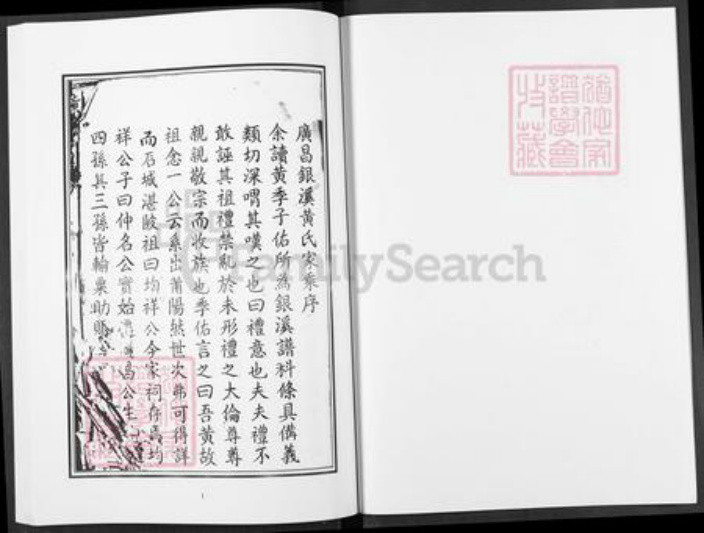 廣昌銀溪黃氏家乘序
余讀黃季子佑所為銀溪譜科條具偹義
類切深喟其嘆之也曰禮意也夫夫禮不
敢誣其祖禮禁亂於未形禮之大倫尊尊
親親敬宗而收族也季佑言之曰吾黃故
祖念一公云系出莆陽然世次弗可得詳
而石城湛陂祖曰均祥公今家祠存焉均
祥公子曰仲名公實始 昌公生
四孫其三孫皆輸粟助賑
1
譜學會
收藏
FamilySearch